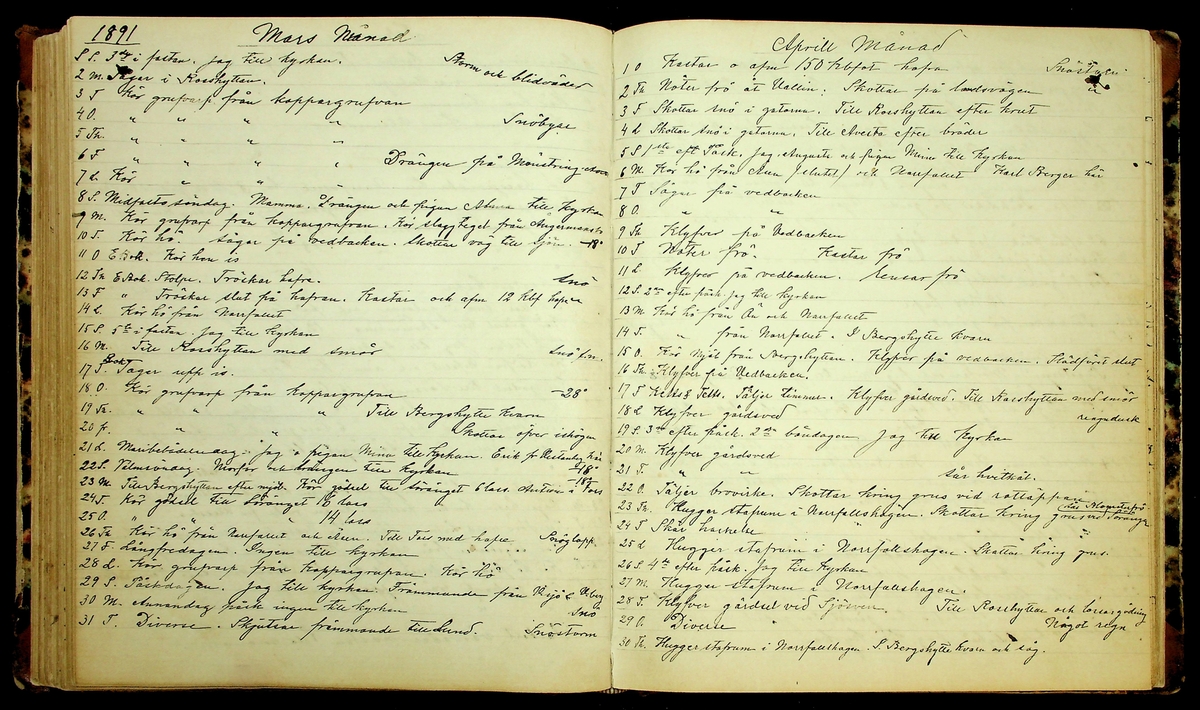 1891
Mars Månad
S S. 3de i fastan. Jag till kyrkan. Storm och blidväder
2 M. Sågar i Rosshyttan.
3 T Kör grufvarp från koppargrufvan
4 O. " " " " Snöbyar
5 Th. " " " "
6 F " " " " Drängen på Mönstring
7 L. Kör " " "
8 S. Midfastosöndag. Mamma. Drängen och pigan Anna till kyrkan
9 M. Kör grufvarp från koppargrufvan. Kör slagg från
10 T. Kör hö. Sågar på vedbacken. Skottar väg till sjön. -18°
11 O E. Bok. Kör hem is
12 Th E Bok. Stolpe. Tröskar hafre. Snö
13 F " Tröskar slut på hafran. Kastar och afm 12 kbf hafre
14 L. Kör hö från Norrfallet
15 S. 5te i fastan. Jag till kyrkan
16 M. Till Rosshyttan med smör Snö fin.
17 T. Bok Tager upp is.
18 O. Kör grufvarp från koppargrufvan -28°
19 Th. " " " Till Bergshytte kvarn
20 F. " " Skottar öfver ishögen
21 L. Mariebebådelsedag. Jag o pigan Mina till kyrkan. Erik fr här
22 S. Palmsöndag. Morfar och drängen till kyrkan -18°
23 M. Till Bergshyttan efter mjöl. Kör gödsel till 6 lass. Anton i Fors -18°
24 T. Kör gödsel till 16 lass
25 O. " " " 14 lass
26 Th Kör hö från Norrfallet och Åen. Till Fors med hafre Snöglopp
27 F. Långfredagen. Ingen till kyrkan
28 L. Kör grufvarp från koppargrufvan. Kör hö
29 S. Påskdagen. Jag till kyrkan. Främmande från
30 M. Annandag påsk ingen till kyrkan Snö
31 T. Diverse. Skjutsar främmande till Lund. Snöstorm
Aprill Månad
1 O Kastar o afm 150 kbfot hafra Snöstorm
2 Th Nöter frö åt Wallin. Skottar på landsvägen
3 F Skottar snö i gatorna. Till Rosshyttan efter krut
4 L Skottar snö i gatorna. Till Avesta efter bräder
5 S 1sta eft Påsk. Jag, Augusta och pigan Mina till kyrkan
6 M. Kör hö från Åen (slutet) och Norrfallet Karl Berger här
7 T Sågar på vedbacken
8 O. " "
9 Th Klyfver på Vedbacken
10 F Nöter frö. Kastar frö
11 L Klyfver på vedbacken. Rensar frö
12 S. 2dra efter påsk. Jag till kyrkan
13 M. Kör hö från Ån och Norrfallet
14 T. " från Norrfallet. I Bergshytte kvarn
15 O. Kör Mjöl från Bergshyttan. Klyfver på vedbacken. Slädföret slut
16 Th. Klyfver på Vedbacken.
17 F Täljer timmer. Klyfver gärdsved. Till Rosshyttan med smör
18 L Klyfver gärdsved regnadusk
19 S. 3dje efter påsk. 2dra böndagen. Jag till kyrkan
20 M. Klyfver gärdsved
21 T. " " Sår hvitkål.
22 O. Täljer brovirke. Skottar kring grus vid rättäppan
23 Th. Hugger stafrum i Norrfallshagen. Skottar kring grus vid
24 F Skär harkelse "
25 L Hugger stafrum i Norrfallshagen. Skottar kring grus.
26 S. 4de efter påsk. Jag till kyrkan
27 M. Hugger stafrum i Norrfallshagen.
28 T. Klyfver gärdsel vid Sjöwren. Till Rosshyttan och
29 O. Diverse Något regn
30 Th. Hugger stafrum i Norrfallshagen. I Bergshytte kvarn och såg.